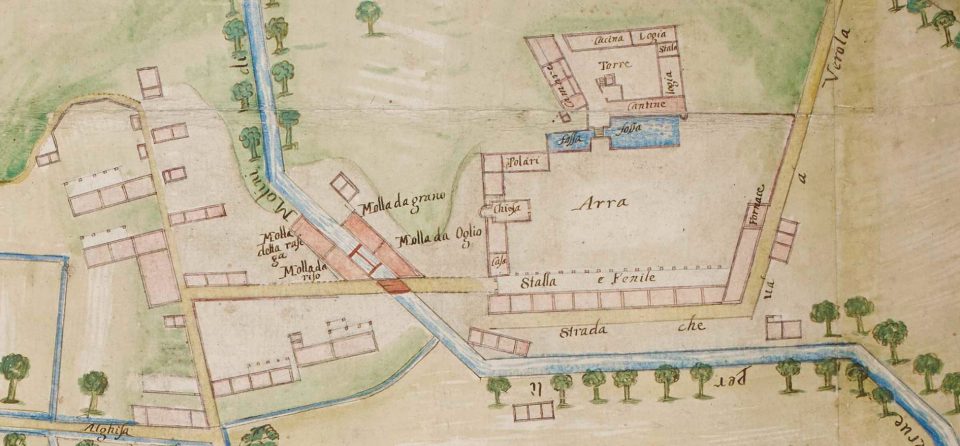 Cucina
Logia
Stala
Torre
Logia
Camare
Cantine
fossa
fossa
Polari
Chiesa
Arra
Fornace
Casa
Stalla e Fenile
Strada che
uà
a
Verola
Molini
Molla da grano
Molla da Oglio
Molla
della rase
ga
Molla da
riso
Alghisa
il
per